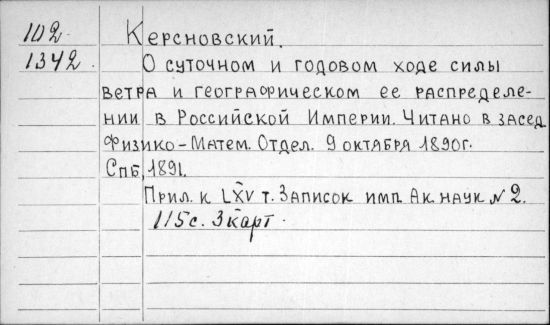 102. Керсновский.
1342. О суточном и годовом ходе силы
ветра и географическом ее распределе-
нии в Российской Империи. Читано в засед.
Физико-Матем. Отдел. 9 октября 1890г.
Спб, 1891.
Прил. к LXV т. Записок имп. Ак. наук № 2.
115с. 3карт.